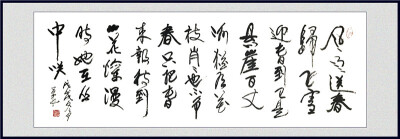 风雨送春
歸飞雪
迎春到已是
悬崖百丈
冰犹有花
枝俏也不争
春只把春
来报待到
山花烂漫
時她在丛
中笑
戊戌